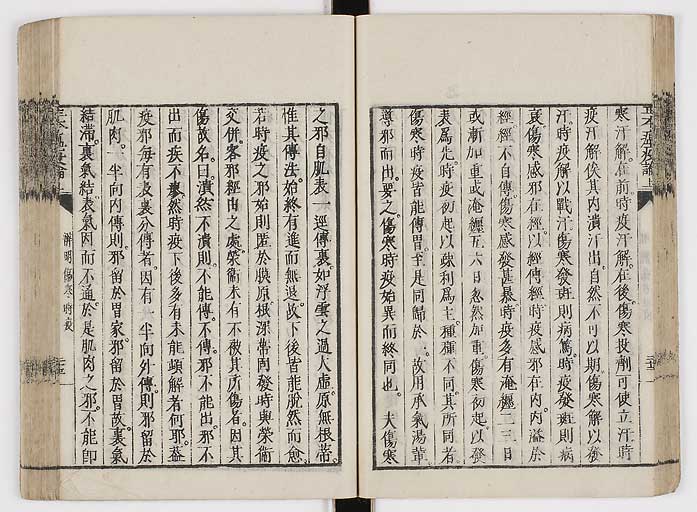 寒汗解在前。時疫汗解在後。傷寒投劑可使立汗。時
疫汗解俟其内潰汗出。自然不可以期。傷寒解以發
汗。時疫解以戰汗。傷寒發斑則病篤。時疫發斑則病
衰。傷寒感邪在經。以經傳經。時疫感邪在内。内溢於
經。經不自傳。傷寒感發甚暴。時疫多有淹纏二三日
或漸加重。或淹纏五六日忽然加重。傷寒初起以發
表爲先。時疫初起以疎利爲主。種種不同。其所同者
傷寒時疫皆能傳胃。至是同歸於一。故用承氣湯輩
導邪而出。要之。傷寒時疫始異而終同也。夫傷寒
之邪自肌表一逕傳裏。如浮雲之過太虛。原無根蔕。
惟其傳法。始終有進而無退。故下後皆能脫然而愈。
若時疫之邪。始則匿於膜原。根深蔕固。發時與榮衞
交併。客邪經由之處。榮衞未有不被其所傷者。因其
傷。故名曰潰。然不潰則不能傳。不傳邪不能出。邪不
出而疾不瘳。然時疫下後。多有未能頓解者何耶。蓋
疫邪每有表裏分傳者。因有一半向外傳。則邪留於
肌肉。一半向内傳。則邪留於胃家。邪留於胃。故裏氣
結滯。裏氣結。表氣因而不通。於是肌肉之邪。不能即
辨明傷寒時疫